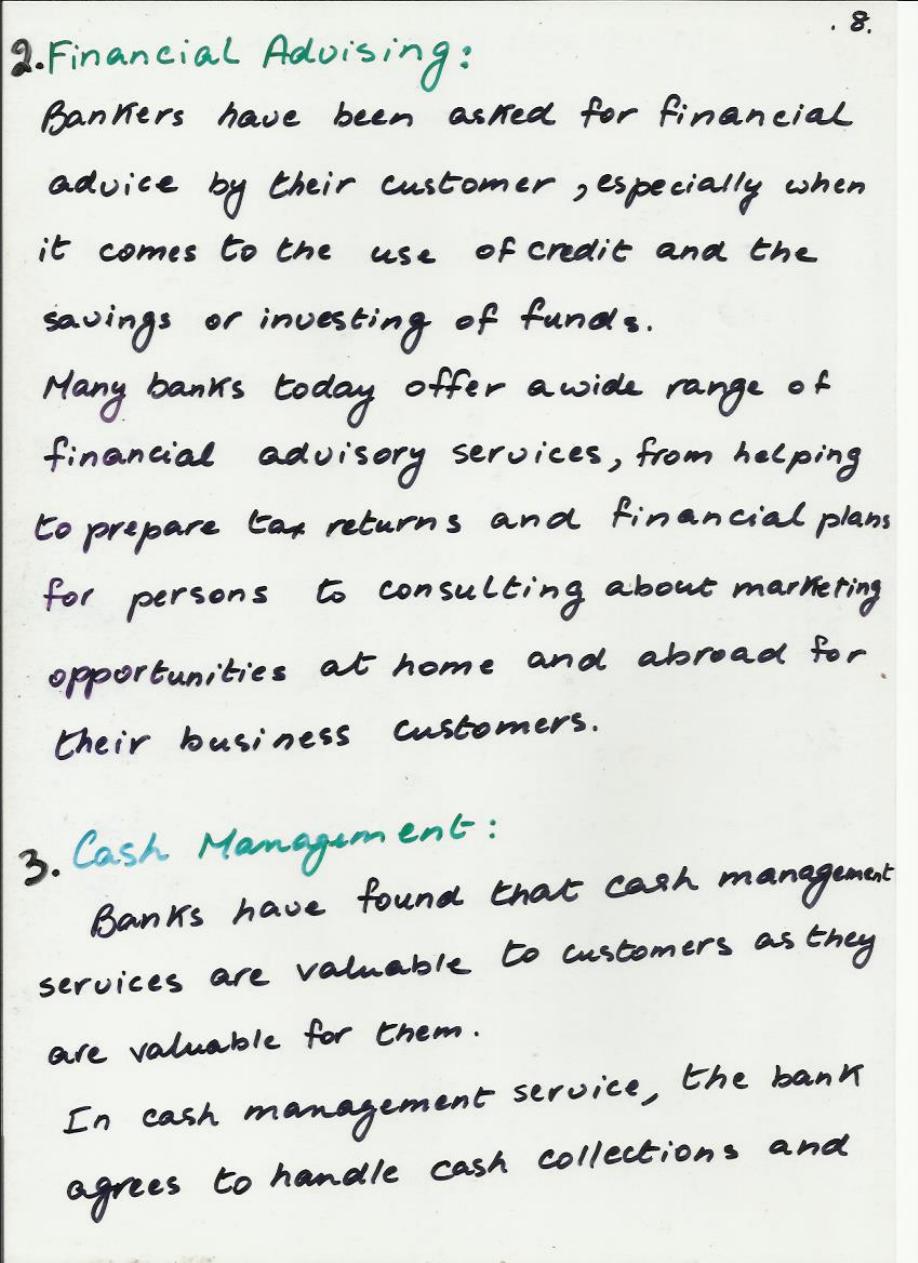 .8.
2. Financial Advising:
Bankers have been asked for financial
advice by their customer, especially when
it comes to the use of credit and the
savings or investing of funds.
Many banks today offer a wide range of
financial advisory services, from helping
to prepare tax returns and financial plans
for persons to consulting about marketing
opportunities at home and abroad for
their business customers.
3. Cash Management:
Banks have found that cash management
services are valuable to customers as they
are valuable for them.
In cash management service, the bank
agrees to handle cash collections and